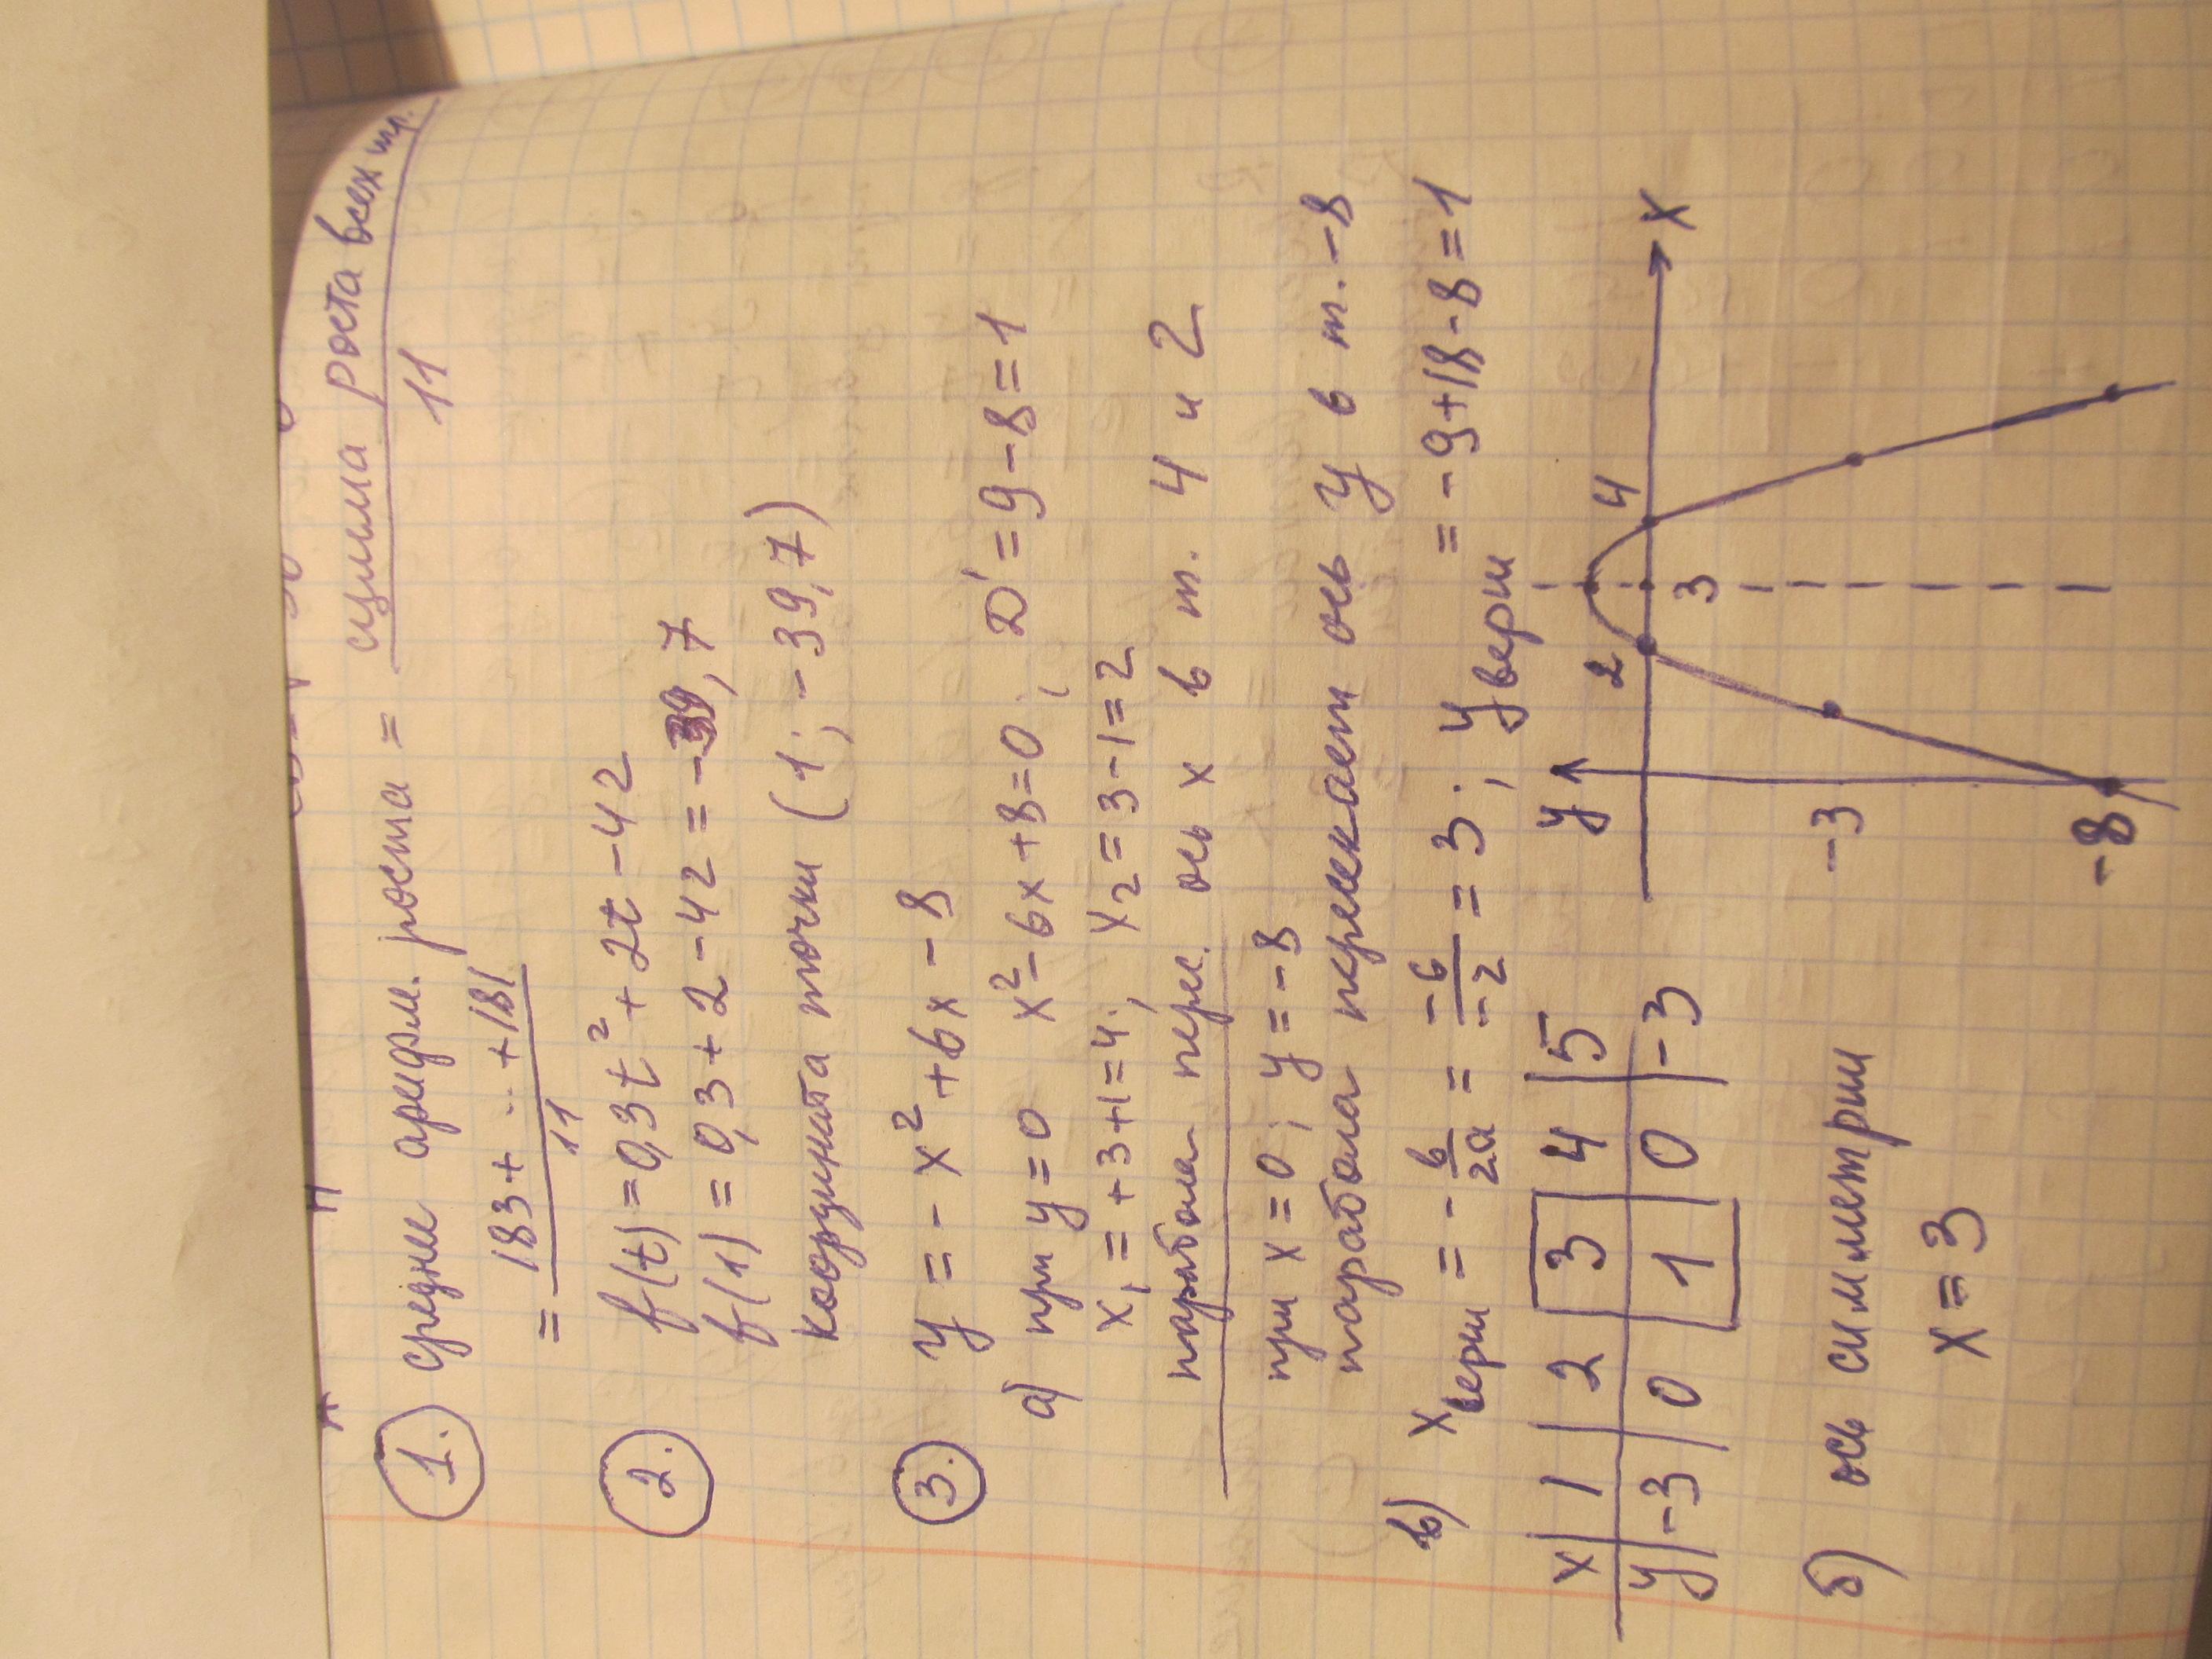 1. среднее арифм. роста = сумма роста всех
11
= 183 + ... + 181
11
2. f(t) = 0,3t² + 2t - 42
f(1) = 0,3 + 2 - 42 = -39,7
координата точки (1; -39,7)
3. y = -x² + 6x - 8
а) при y = 0 x² - 6x + 8 = 0; D' = 9 - 8 = 1
x₁ = +3+1=4; x₂ = 3-1=2
парабола перес. ось x в т. 4 и 2
при x = 0; y = -8
парабола пересекает ось y в т. -8
в) xверш = - b/2a = -6/-2 = 3; yверш = -9+18-8=1
x | 1 | 2 | 3 | 4 | 5
y | -3 | 0 | 1 | 0 | -3
y 2 4 x
3
-3
-8
б) ось симметрии
x = 3